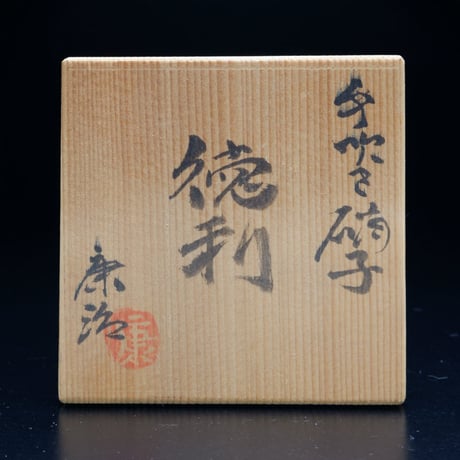 手吹き硝子
徳利
康治